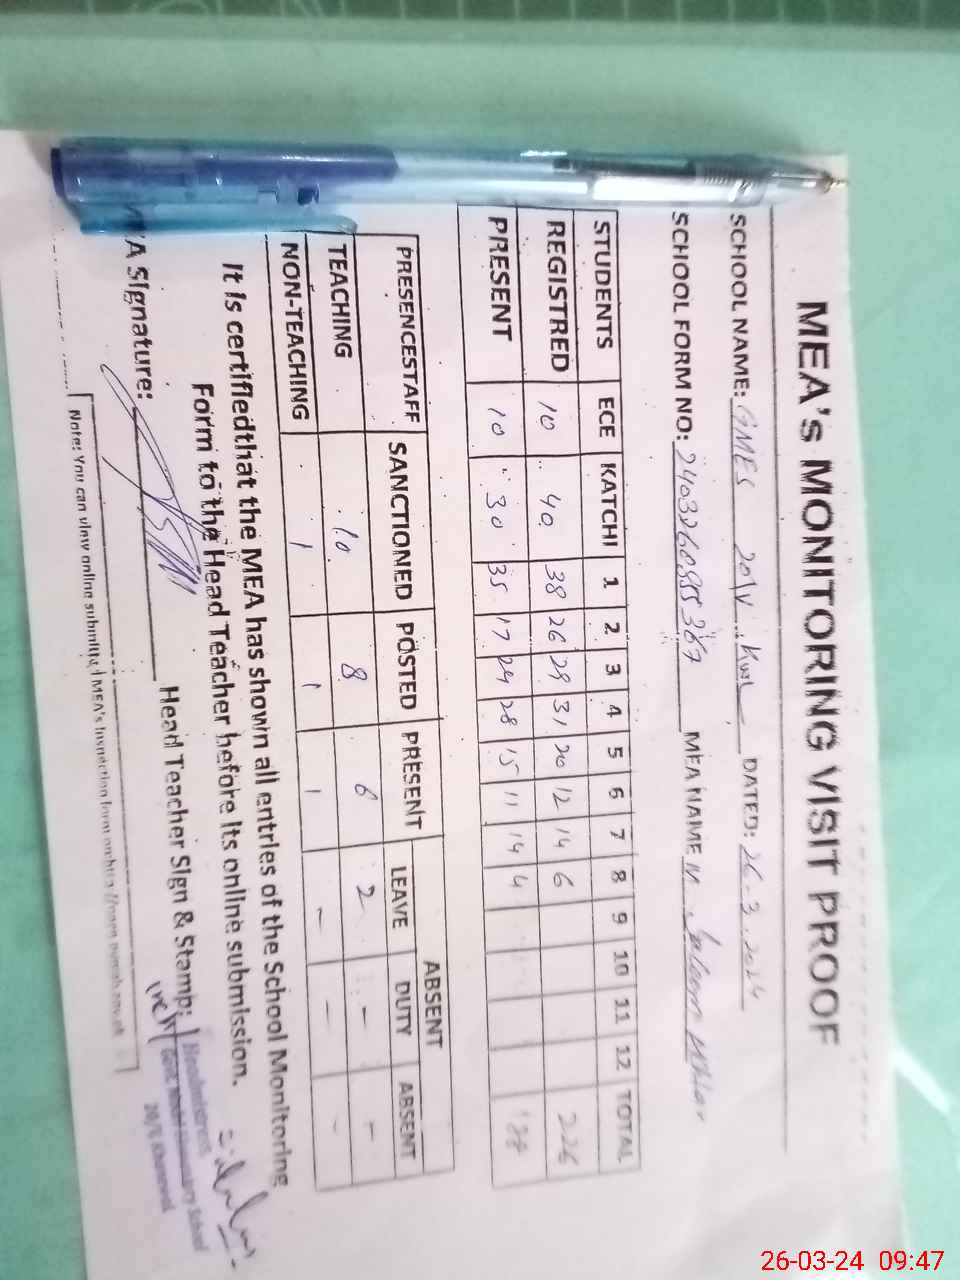 MEA's MONITORING VISIT PROOF
SCHOOL NAME: GMES 20/V Kwl DATED: 26.3.2024
SCHOOL FORM NO: MEA NAME M. Saleem
STUDENTS ECE KATCHI 1 2 3 4 5 6 7 8 9 10 11 12 TOTAL
REGISTRED 10 40 38 26 29 31 20 12 14 6 226
PRESENT 10 30 35 17 24 28 15 11 14 4 188
PRESENCESTAFF SANCTIONED POSTED PRESENT ABSENT
LEAVE DUTY ABSENT
TEACHING 10 8 6 2 - -
NON-TEACHING 1 1 1 - - -
It is certifiedthat the MEA has shown all entries of the School Monitoring
Form to the Head Teacher before its online submission.
A Signature: Head Teacher Sign & Stamp:
Headmistress
Govt. Model Elementary School
20/V Khanewal
Note: You can view online submitted MEA's Inspection form on
26-03-24 09:47